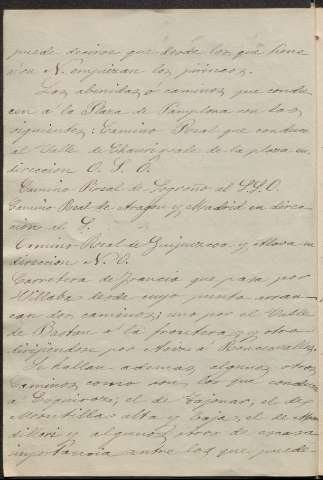 puede decirse que desde los que tiene
á su N. empiezan los pirineos.
Las abenidas ó caminos que condu
cen á la Plaza de Pamplona son las
siguientes: Camino Real que conduce
al Valle de Echauri y sale de la plaza en
direccion O. S. O.
Camino Real de Logroño al S.S.O.
Camino Real de Aragon y Madrid en direc
ción al S.
Camino Real de Guipuzcoa y Alava en
direccion N. O.
Carretera de Francia que pasa por
Villaba desde cuyo punto arran
can dos caminos; uno por el Valle
de Baztan á la frontera y otro
dirijiendose por Aoiz á Roncesvalles.
Se hallan ademas algunos otros
caminos como son los que conducen
á Esquiroz; el de Tajonar, el de
Mendillo alta y baja, el de
y algunos otros de escasa
importancia entre los que puede